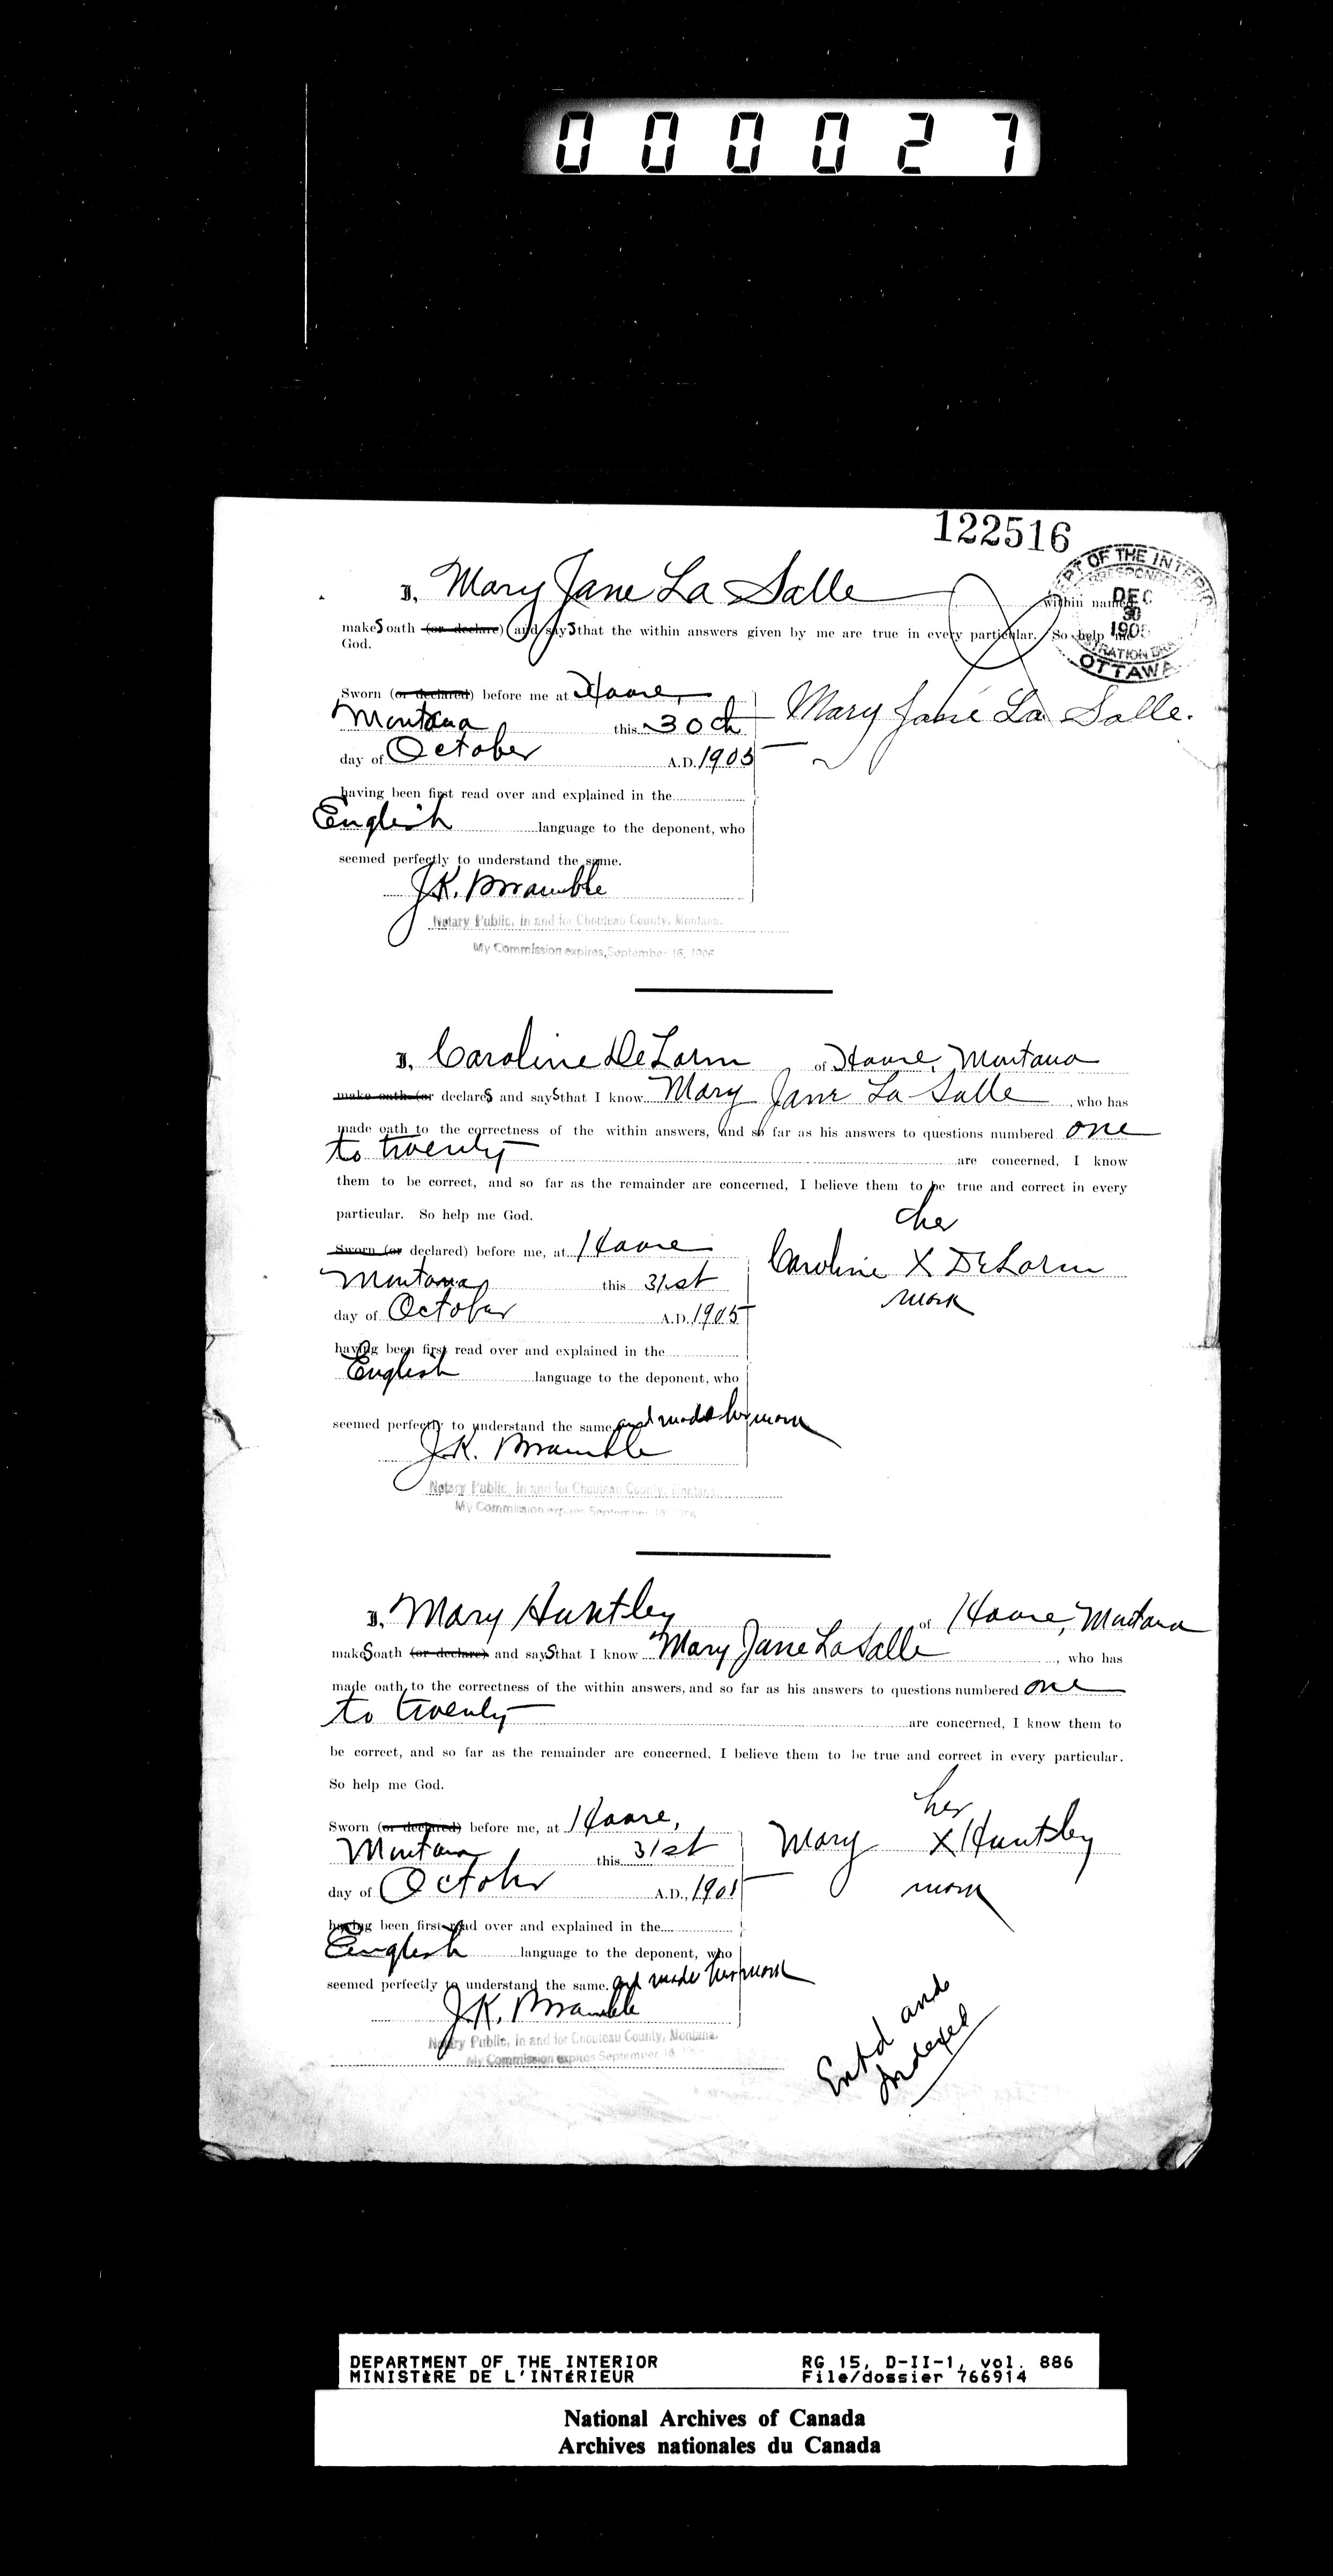 000027
122516
DEPT OF THE INTERIOR
CORRESPONDENCE
DEC
30
1905
REGISTRATION BRANCH
OTTAWA
I, Mary Jane La Salle within named
makeS oath (or declare) and sayS that the within answers given by me are true in every particular. So help me
God.
Sworn (or declared) before me at Havre,
Montana this 30th
day of October A.D. 1905
having been first read over and explained in the
English language to the deponent, who
seemed perfectly to understand the same.
J.K. Bramble
Notary Public, in and for Chouteau County, Montana.
My Commission expires, September 16, 1906
Mary Jane La Salle.
I, Caroline DeLorm of Havre, Montana
make oath (or declareS and sayS that I know Mary Jane La Salle, who has
made oath to the correctness of the within answers, and so far as his answers to questions numbered one
to twenty are concerned, I know
them to be correct, and so far as the remainder are concerned, I believe them to be true and correct in every
particular. So help me God.
Sworn (or declared) before me, at Havre
Montana this 31st
day of October A.D. 1905
having been first read over and explained in the
English language to the deponent, who
seemed perfectly to understand the same and made her mark
J.K. Bramble
Notary Public, in and for Chouteau County, Montana.
My Commission expires September 16, 1906
her
Caroline X DeLorm
mark
I, Mary Huntley of Havre, Montana
makeS oath (or declare) and sayS that I know Mary Jane LaSalle, who has
made oath to the correctness of the within answers, and so far as his answers to questions numbered one
to twenty are concerned, I know them to
be correct, and so far as the remainder are concerned, I believe them to be true and correct in every particular.
So help me God.
Sworn (or declared) before me, at Havre,
Montana this 31st
day of October A.D., 1905
having been first read over and explained in the
English language to the deponent, who
seemed perfectly to understand the same. and made her mark
J.K. Bramble
Notary Public, in and for Chouteau County, Montana.
My Commission expires September 16,
her
Mary X Huntley
mark
Entd and
Indexed
DEPARTMENT OF THE INTERIOR RG 15, D-II-1, vol. 886
MINISTÈRE DE L'INTÉRIEUR File/dossier 766914
National Archives of Canada
Archives nationales du Canada